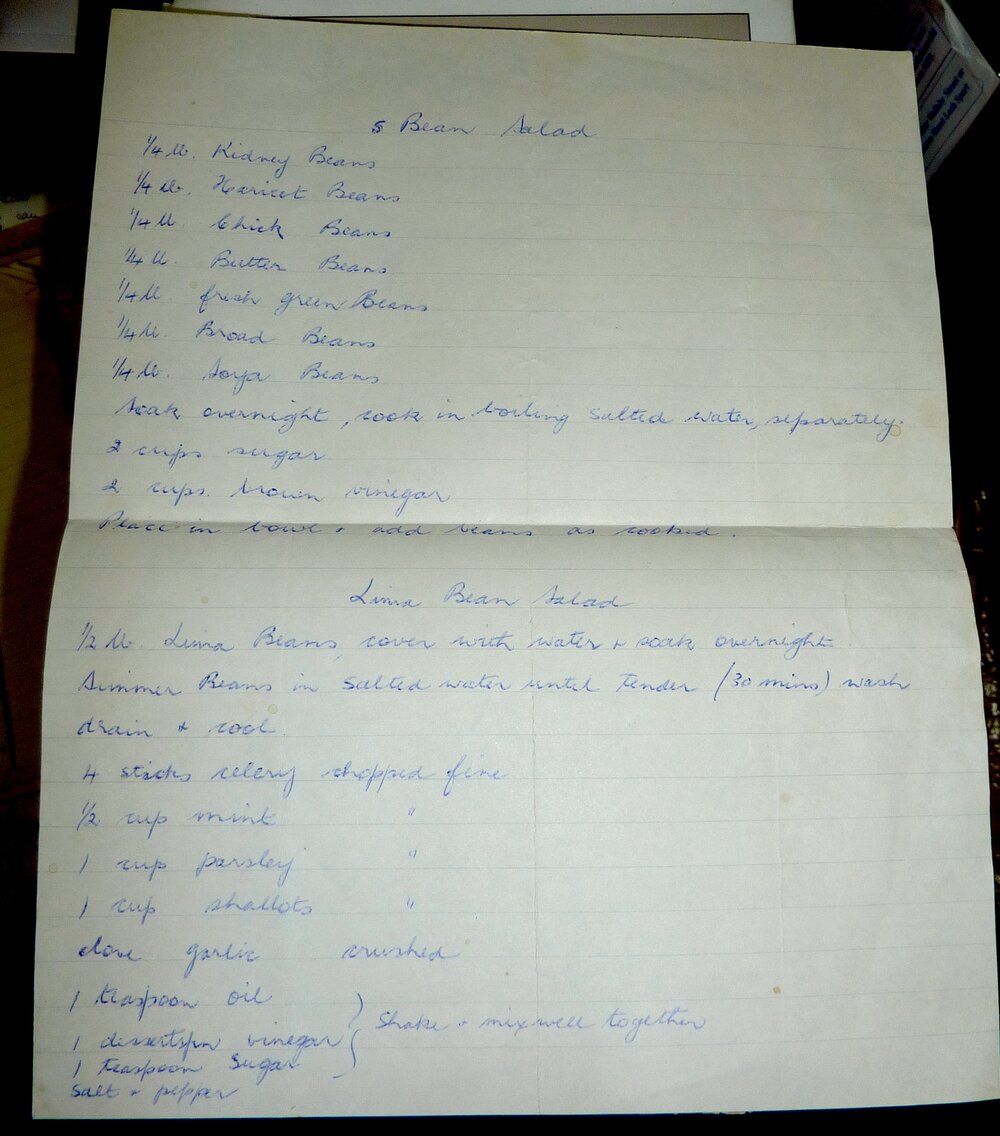 5 Bean Salad
1/4 lb. Kidney Beans
1/4 lb. Haricot Beans
1/4 lb. Chick Beans
1/4 lb. Butter Beans
1/4 lb. fresh green Beans
1/4 lb. Broad Beans
1/4 lb. Soya Beans
Soak overnight, cook in boiling salted water, separately.
2 cups sugar
2 cups. brown vinegar
Place in bowl + add beans as cooked.
Lima Bean Salad
1/2 lb. Lima Beans, cover with water + soak overnight.
Simmer Beans in salted water until tender (30 mins) wash
drain + cool.
4 sticks celery chopped fine
1/2 cup mint "
1 cup parsley "
1 cup shallots "
clove garlic crushed
1 teaspoon oil
1 dessertspn vinegar } Shake + mix well together
1 teaspoon sugar
salt + pepper